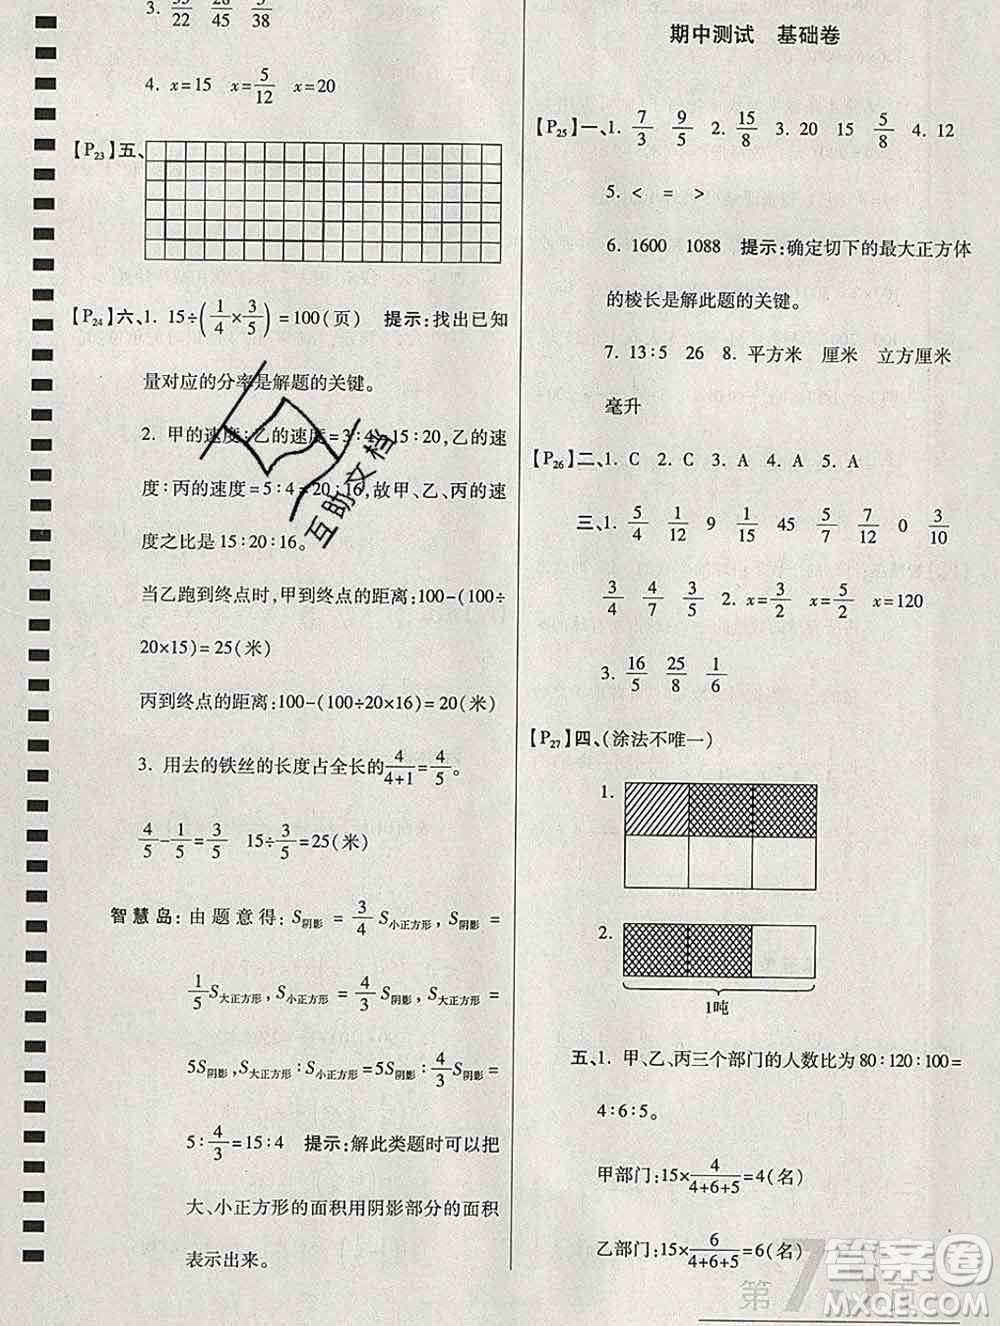 3. 35/22 28/45 5/38
4. x=15 x=5/12 x=20
【P23】五、
【P24】六、1. 15÷(1/4×3/5)=100(页) 提示:找出已知
量对应的分率是解题的关键。
2. 甲的速度:乙的速度=3:4=15:20,乙的速
度:丙的速度=5:4=20:16,故甲、乙、丙的速
度之比是15:20:16。
当乙跑到终点时,甲到终点的距离:100-(100÷
20×15)=25(米)
丙到终点的距离:100-(100÷20×16)=20(米)
3. 用去的铁丝的长度占全长的4/4+1=4/5。
4/5-1/5=3/5 15÷3/5=25(米)
智慧岛:由题意得:S阴影=3/4S小正方形,S阴影=
1/5S大正方形,S小正方形=4/3S阴影,S大正方形=
5S阴影,S大正方形:S小正方形=5S阴影:4/3S阴影=
5:4/3=15:4 提示:解此类题时可以把
大、小正方形的面积用阴影部分的面积
表示出来。
期中测试 基础卷
【P25】一、1. 7/3 9/5 2. 15/8 3. 20 15 5/8 4. 12
5. < = >
6. 1600 1088 提示:确定切下的最大正方体
的棱长是解此题的关键。
7. 13:5 26 8. 平方米 厘米 立方厘米
毫升
【P26】二、1. C 2. C 3. A 4. A 5. A
三、1. 5/4 1/12 9 1/15 45 5/12 7/12 0 3/10
3/4 4/7 3/5 2. x=3/2 x=5/2 x=120
3. 16/5 25/8 1/6
【P27】四、(涂法不唯一)
1.
2.
1吨
五、1. 甲、乙、丙三个部门的人数比为80:120:100=
4:6:5。
甲部门:15×4/4+6+5=4(名)
乙部门:15×6/4+6+5=6(名)
第7页
互助文档
答案圈
MXQE.COM